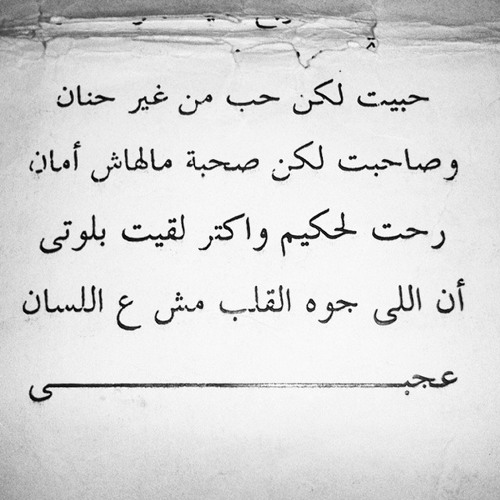 حبيت لكن حب من غير حنان
وصاحبت لكن صحبة مالهاش أمان
رحت لحكيم واكتر لقيت بلوتى
أن اللى جوه القلب مش ع اللسان
عجبـــــــــــــــــــــــى